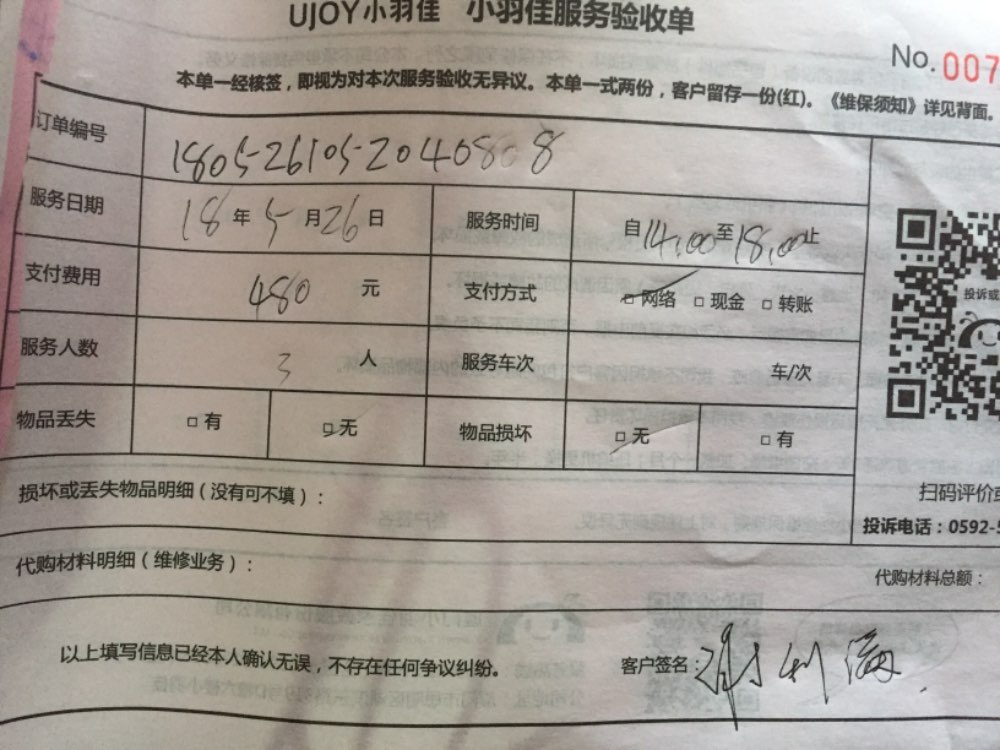 UJOY小羽佳 小羽佳服务验收单
No. 007
本单一经核签，即视为对本次服务验收无异议。本单一式两份，客户留存一份(红)。《维保须知》详见背面。
订单编号 1805-26105-20408 8
服务日期 18 年 5 月 26 日 服务时间 自14:00至18:00止
支付费用 480 元 支付方式 ☑网络 □现金 □转账
服务人数 3 人 服务车次 车/次
物品丢失 □有 ☑无 物品损坏 ☑无 □有
投诉或
损坏或丢失物品明细（没有可不填）：
扫码评价或
投诉电话：0592-5
代购材料明细（维修业务）：
代购材料总额：
以上填写信息已经本人确认无误，不存在任何争议纠纷。 客户签名：